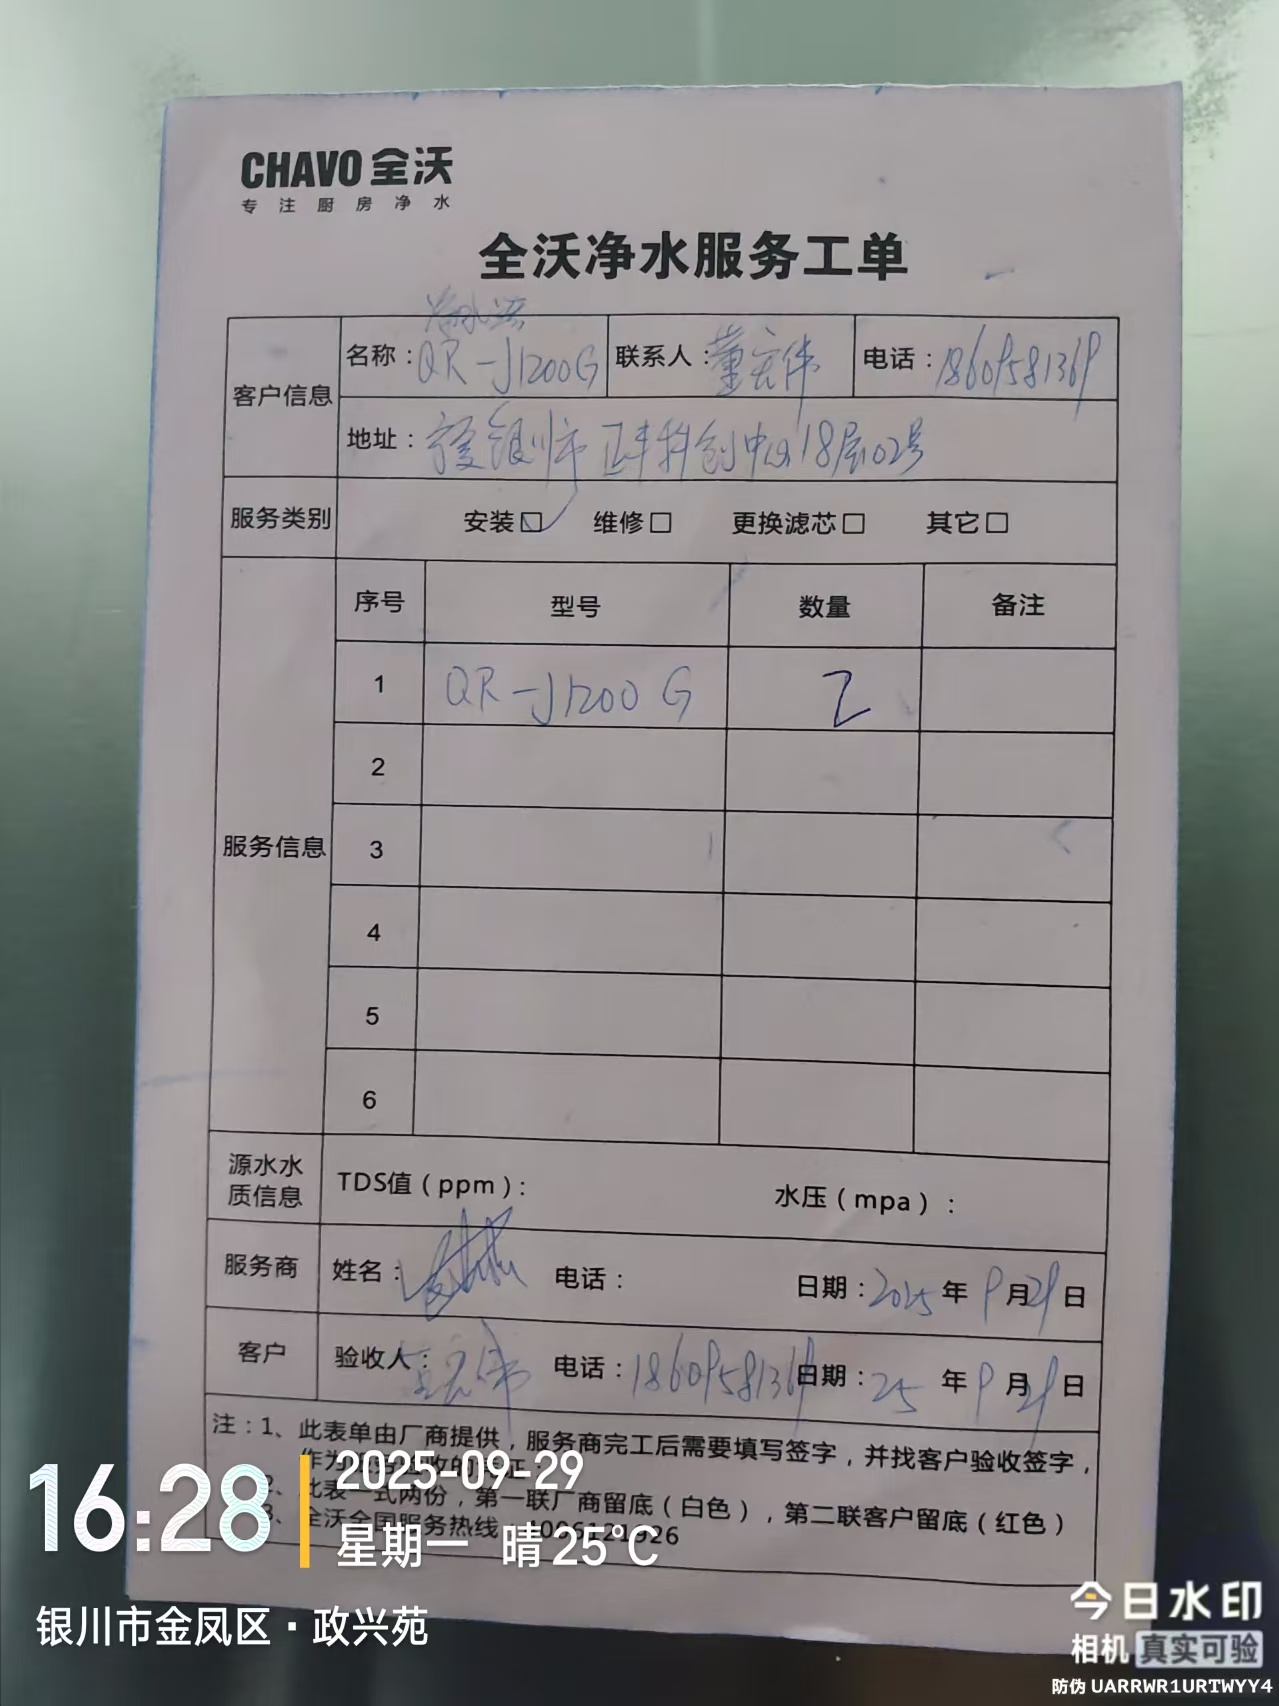 CHAVO 全沃
专注厨房净水
全沃净水服务工单
净水器
客户信息 名称：QR-J1200G 联系人：董宏伟 电话：18609581369
地址：宁夏银川市正丰科创中心18层02号
服务类别 安装☑ 维修□ 更换滤芯□ 其它□
服务信息 序号 型号 数量 备注
1 QR-J1200G 2
2
3
4
5
6
源水水质信息 TDS值（ppm）： 水压（mpa）：
服务商 姓名： 电话： 日期：2025年9月29日
客户 验收人：董宏伟 电话：18609581369 日期：25年9月29日
注：1、此表单由厂商提供，服务商完工后需要填写签字，并找客户验收签字，
作为
2、此表一式两份，第一联厂商留底（白色），第二联客户留底（红色）
3、全沃全国服务热线
16:28
2025-09-29
星期一 晴 25℃
银川市金凤区·政兴苑
今日水印
相机 真实可验
防伪 UARRWR1URTWYY4